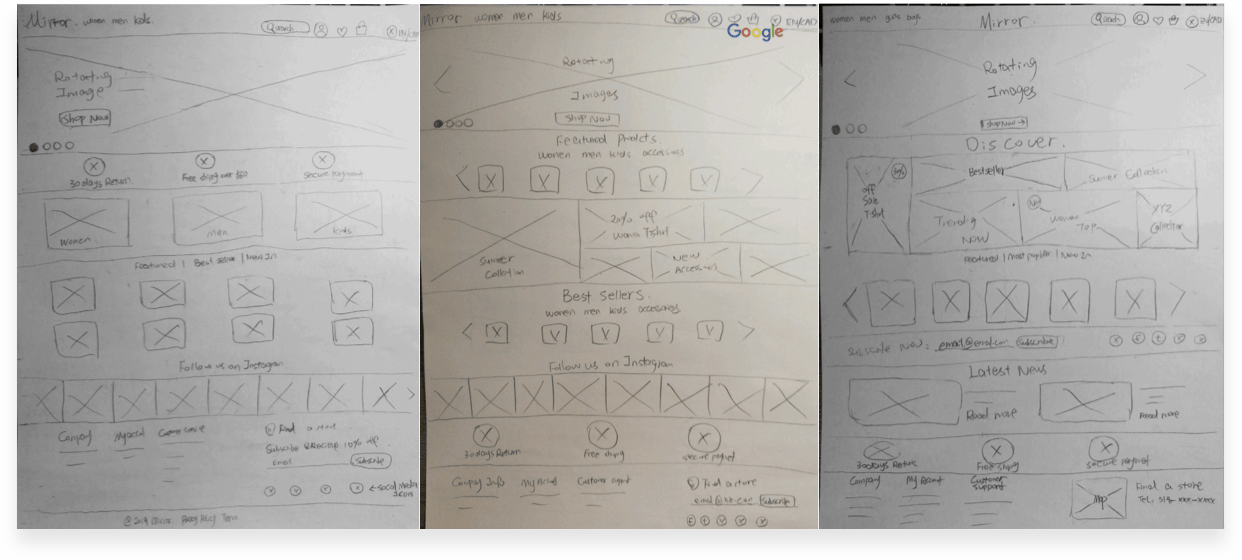 Mirror. women men kids.
Search
EN/CAD
Rotating
Image
Shop Now
30 days Return
Free shipng over $50
secure payment
women
men
kids
Featured | Best seller | New In
Follow us on Instagram
Company
My accont
Find a store
Subscribe & Receive 10% off
email
Subscribe
social media
icons
@ 2019 Mirror. Policy Term
Mirror women men kids
Search
EN/CAD
Google
Rotating
Images
Shop Now
Featured Prodcts.
women men kids accessoris
Sumer
Collection
20% off
Woman T-shirt
New
Accessoris
Best Sellers.
women men kids accessories
Follow us on Instagram
30 days Return
Free shipng
secure paymet
Company Info
My Accont
Customer
Find a store
Subscribe
women men girls boys
Mirror.
Search
EN/CAD
Rotating
Images
Shop Now →
Discover.
off
Sale
T-shirt
Bestseller
Sumer Collection
Trending
Now
New
Woman
Top
XYZ
Collection
Featured | most popular | New In
Now: email@email.com Subscribe
Latest News
Read more
Read more
30 days Return
Free shipng
secure payment
Company
My Accont
Customer
Support
Map
Find a store
Tel: 514-xxx-xxxx